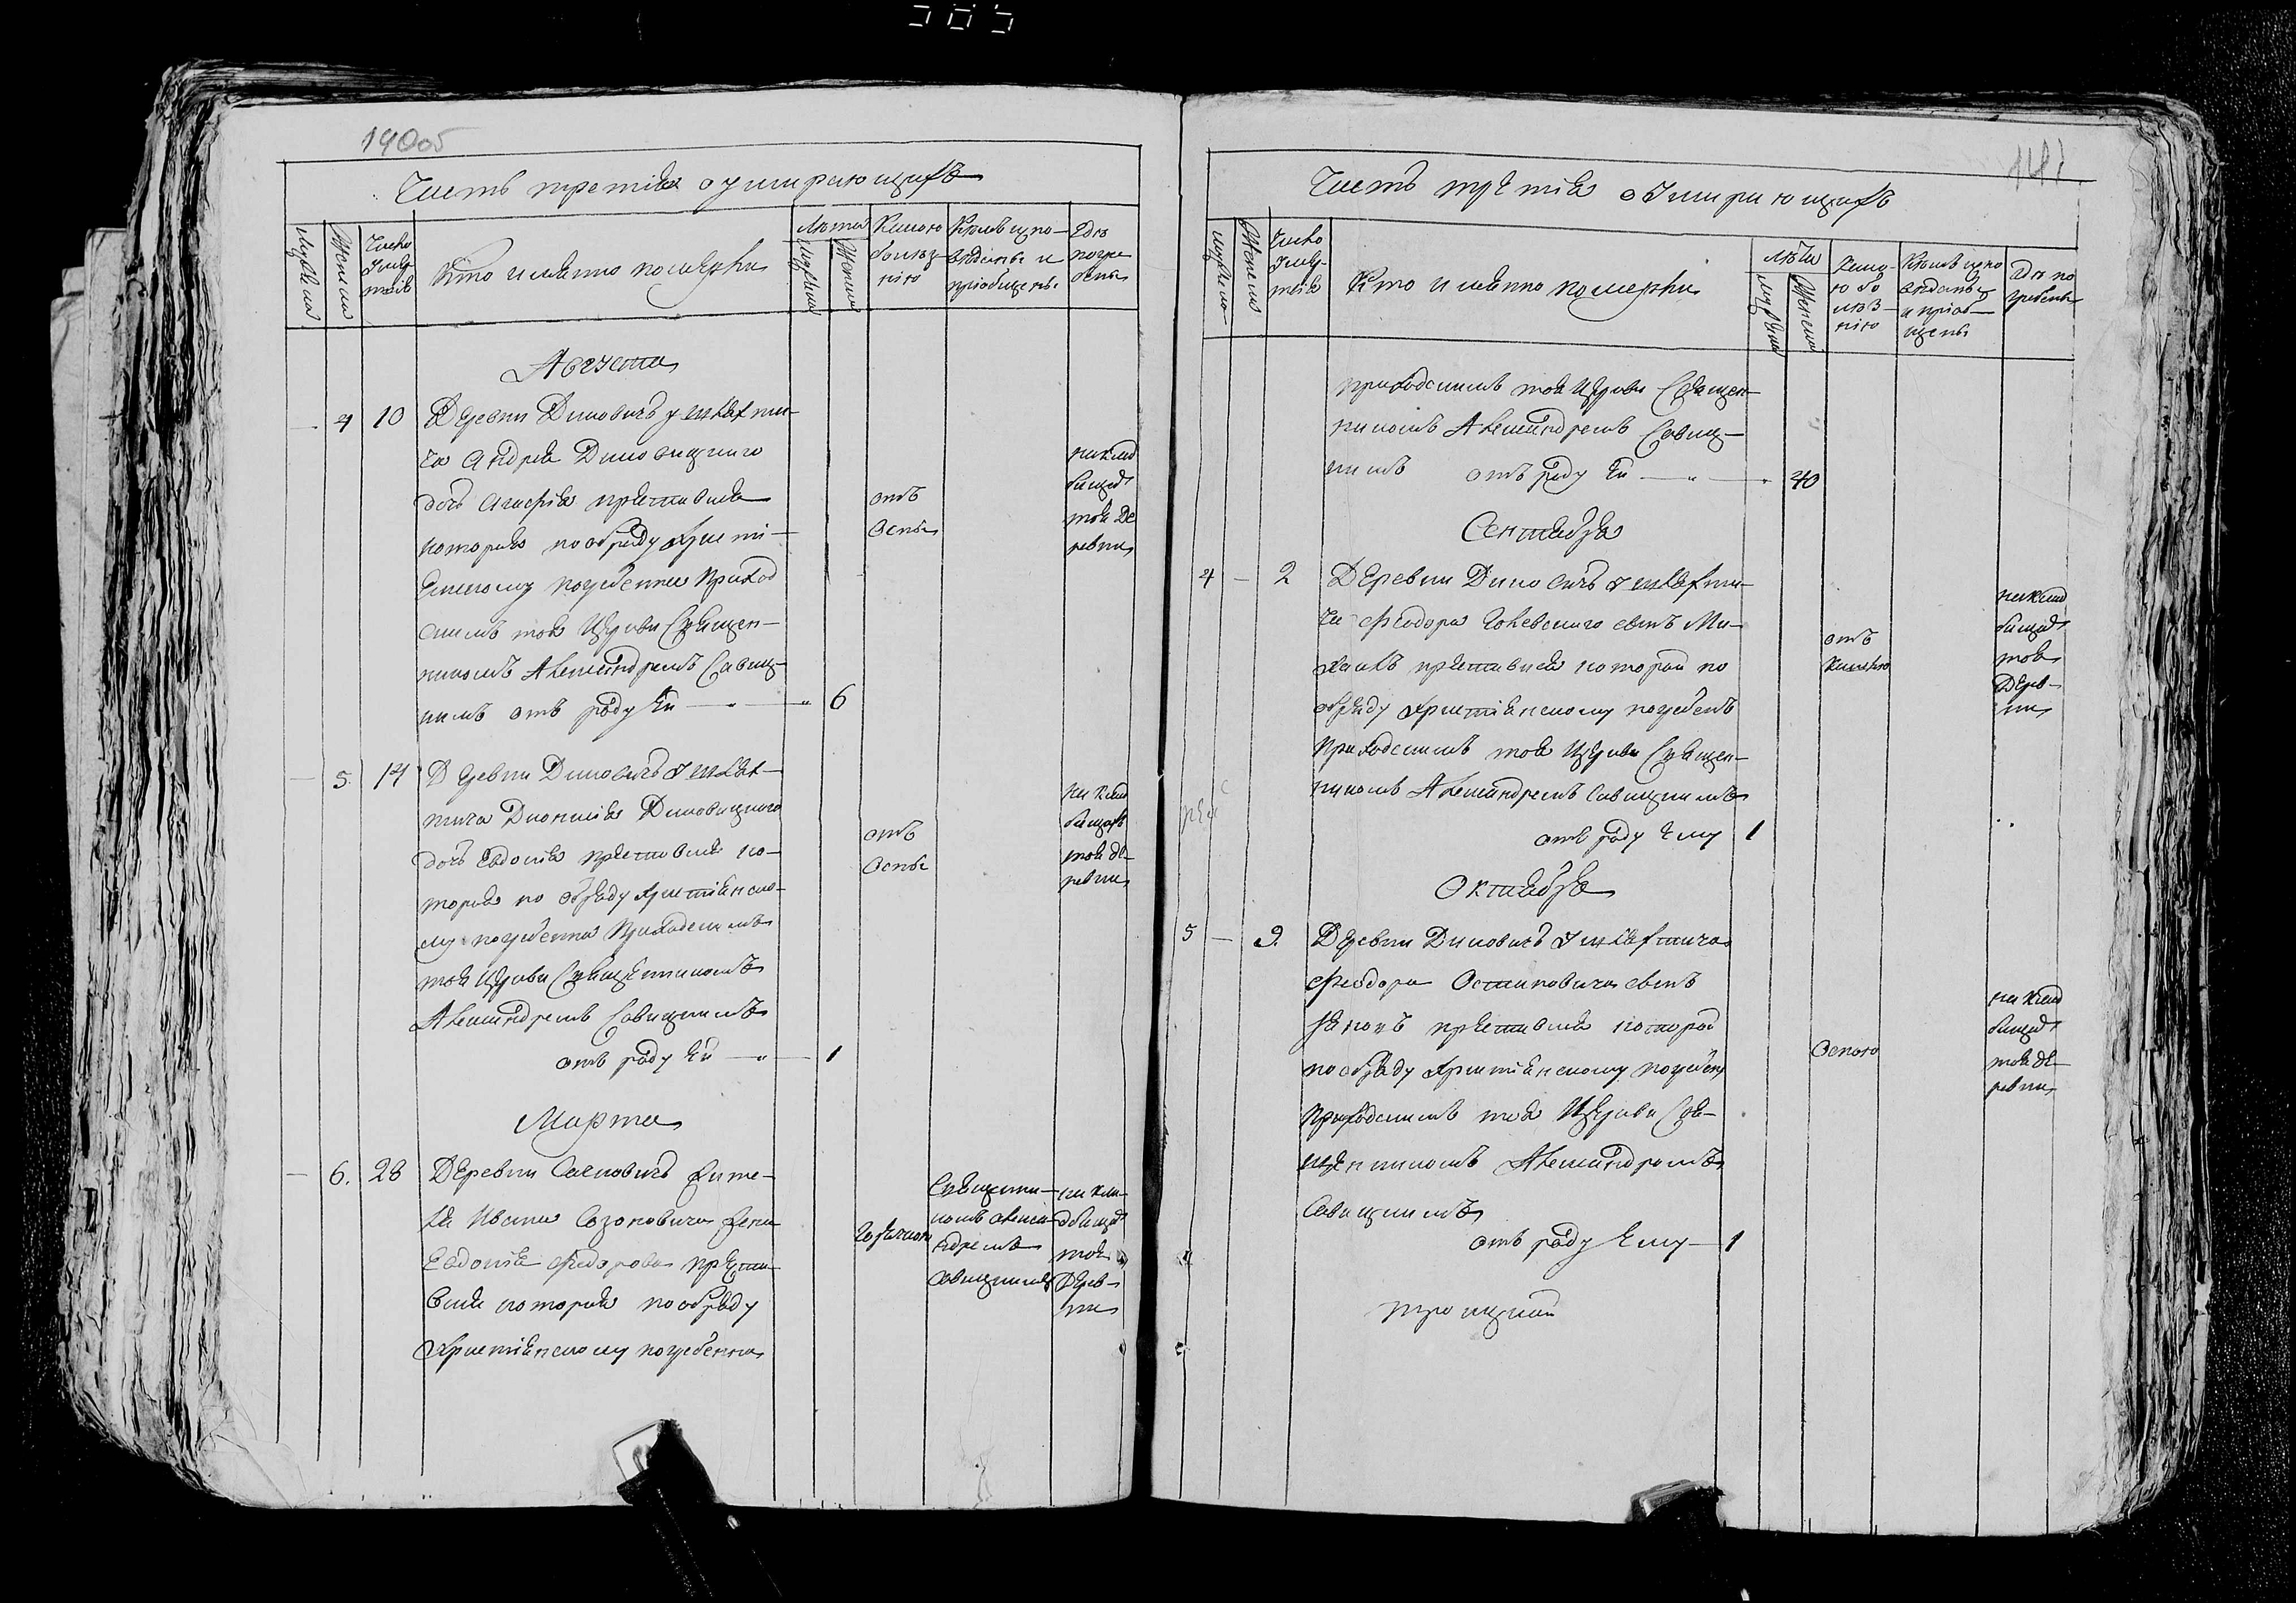 190об
Часть третія оумирающихъ
Мужеска
Женска
Число
Умер-
твiя
Кто именно померли
Лѣта
Мужеска
Женска
Какою
болѣз-
нію
Кѣмъ испо-
вѣданы и
пріобщены
Гдѣ
погре
бены
Августа
4 10 Деревни Диковичъ у шляхти-
ча Андрея Диковицкаго
дочь Агафія преставися
которая по обряду христі-
погребенна приход
скимъ тоя Церкви Священ-
никомъ Александромъ Савиц-
кимъ отъ роду ей 6
отъ
Оспы
на клад
бищѣ
тоя де
ревни
5. 14 Деревни Диковичъ У шлях-
тича Дионисія Диковицкаго
дочь Евдокія преставися ко-
торая по обряду христіанско-
му погребенна Приходскимъ
тоя Церкви Священникомъ
Александромъ Савицкимъ
отъ роду ей 1
отъ
Оспы
на клад
бищѣ
тоя де-
ревни
Марта
6. 28 Деревни жите-
ля Ивана Созоновича жена
Евдокія Федорова преста-
вися которая по обряду
Христіанскому погребенна
Горячкою
Священни-
комъ Алекса-
ндромъ
Савицкимъ
на кла-
дбищѣ
тоя
Дерев-
ни
Часть третія обумирающихъ
Мужеска
Женска
Число
Умер-
твія
Кто именно померли
лѣта
Мужеска
Женска
Како-
ю бо
лѣз-
нію
Кѣмъ испо
вѣданы
и пріоб-
щены
Гдѣ по
гребены
приходскимъ тоя Церкви Священ-
никомъ Александромъ Савиц-
кимъ отъ роду ей 40
Сентября
4 2 Деревни Диковичъ У шляхти-
ча Феодора сынъ Ми-
хаилъ преставися которой по
обряду христіанскому погребенъ
приходскимъ тоя Церкви Священ-
никомъ Александромъ Савицкимъ
отъ роду ему 1
отъ
кашлю
на клад
бищѣ
тоя
Дерев-
ни
Октября
5 9. Деревни Диковичъ У шляхтича
Феодора Остаповича сынъ
Іяковъ преставися которой
по обряду христіанскому погребен
приходскимъ тоя Церкви Свя-
щенникомъ Александромъ
Савицкимъ
отъ роду ему 1
Оспою
на клад
бищѣ
тоя де-
ревни
троицкой